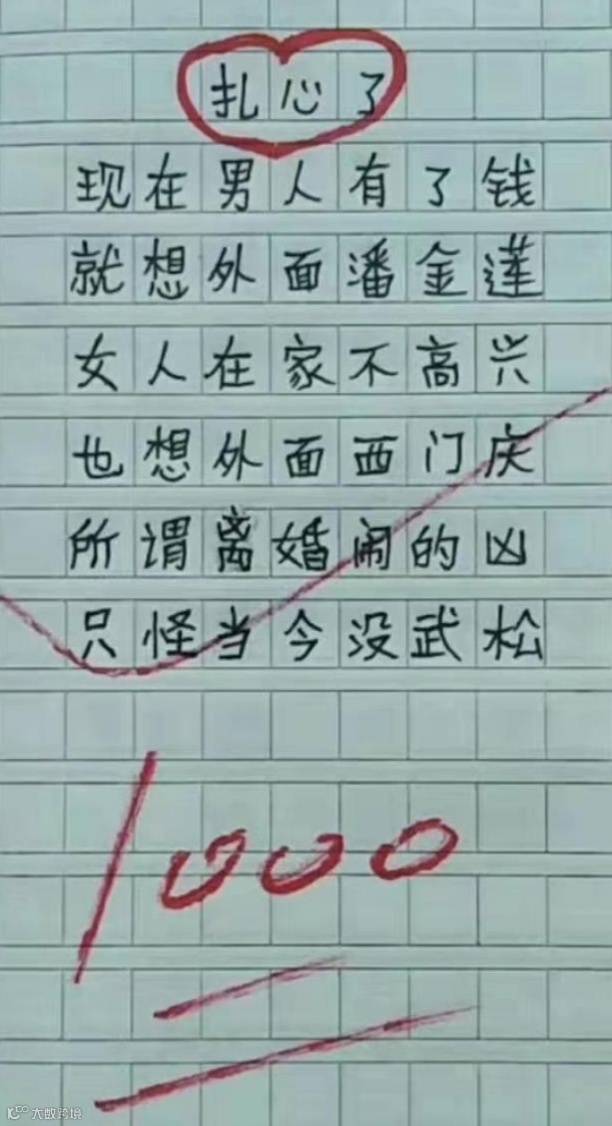 扎心了
现在男人有了钱
就想外面潘金莲
女人在家不高兴
也想外面西门庆
所谓离婚闹的凶
只怪当今没武松
1000
大数跨境